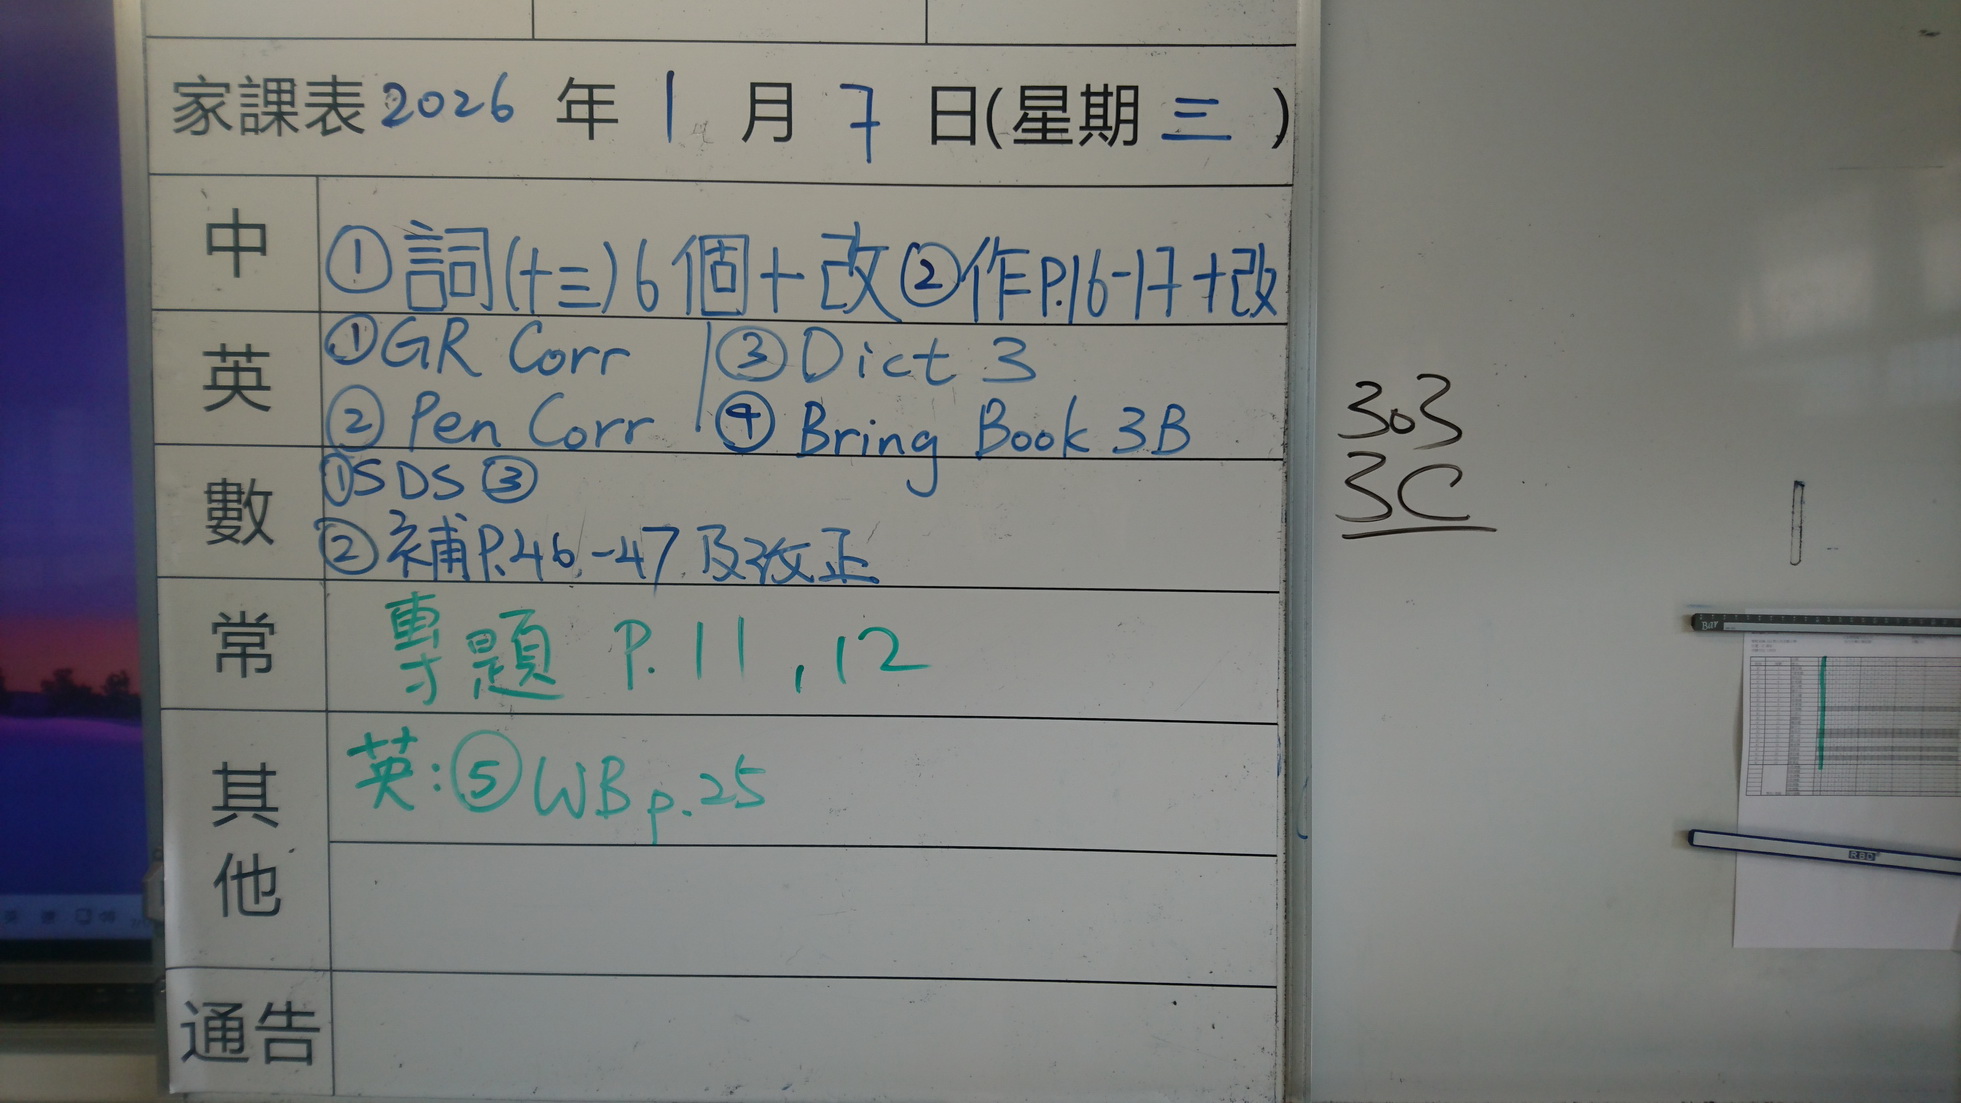 家課表 2026 年 1 月 7 日(星期 三 )
中
①詞(十三)6個+改②作P.16-17+改
英
①GR Corr
②Pen Corr
③Dict 3
④Bring Book 3B
數
①SDS③
②補P.46-47及改正
常
專題 P.11,12
其他
英:⑤WB p.25
通告
303
3C